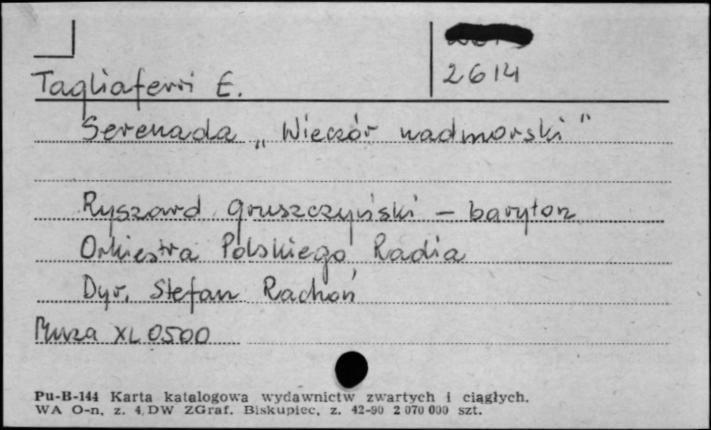 2614
Tagliaferri E.
Serenada „Wieczór nadmorski”
Ryszard Gruszczyński – baryton
Orkiestra Polskiego Radia
Dyr. Stefan Rachoń
Muza XL 0500
Pu-B-144 Karta katalogowa wydawnictw zwartych i ciągłych.
WA O-n, z. 4, DW ZGraf. Biskupiec, z. 42-90 2 070 000 szt.